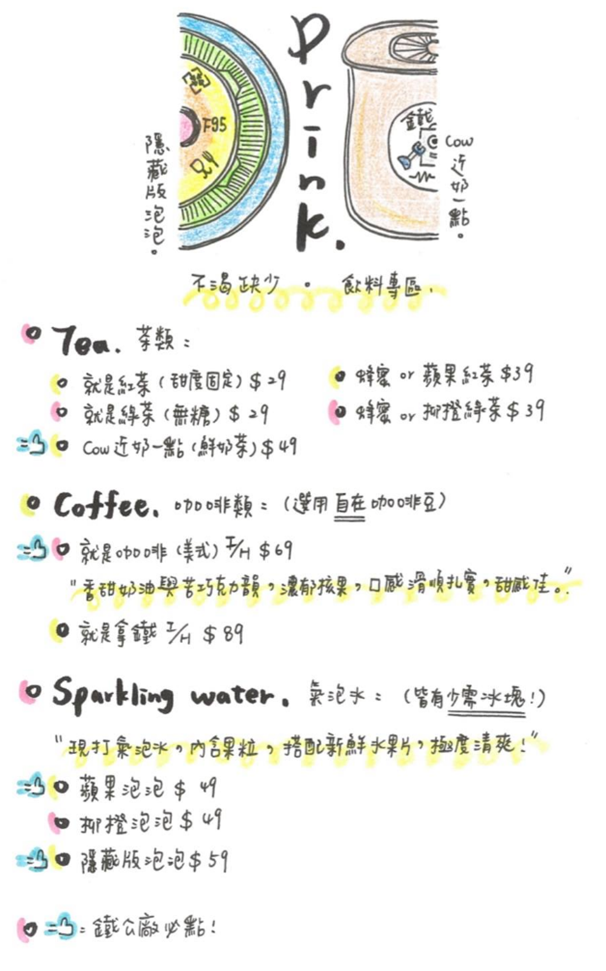 Drink.
F95
隱藏版泡泡。
鐵
Cow近奶一點。
不渴缺少 · 飲料專區.
Tea. 茶類：
就是紅茶 (甜度固定) $29
蜂蜜 or 蘋果紅茶 $39
就是綠茶 (無糖) $ 29
蜂蜜 or 柳橙綠茶 $39
Cow近奶一點 (鮮奶茶) $49
Coffee. 咖啡類：(選用自在咖啡豆)
就是咖啡 (美式) I/H $69
"香甜奶油與苦巧克力韻，濃郁核果，口感滑順扎實，甜感佳。"
就是拿鐵 I/H $ 89
Sparkling water. 氣泡水：(皆有少需冰塊!)
"現打氣泡水，內含果粒，搭配新鮮水果片，極度清爽!"
蘋果泡泡 $ 49
柳橙泡泡 $ 49
隱藏版泡泡 $59
= 鐵公廠必點!